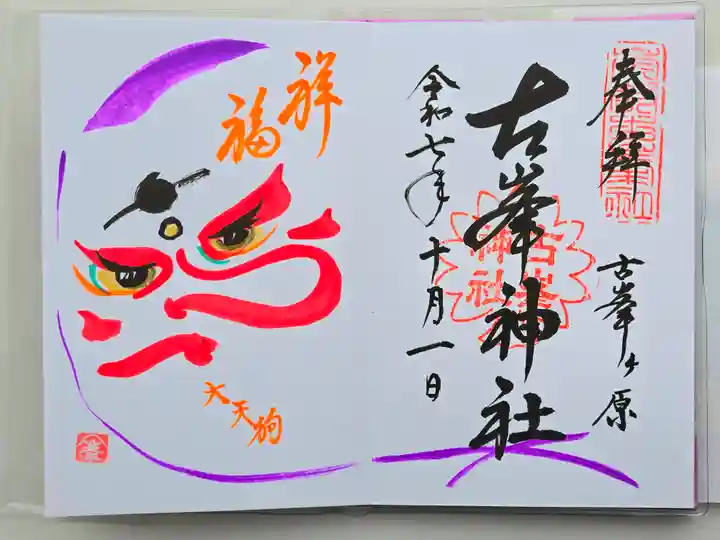 奉拝
古峯ヶ原
古峯神社
古峯神社
令和七年十月一日
祥福
大天狗